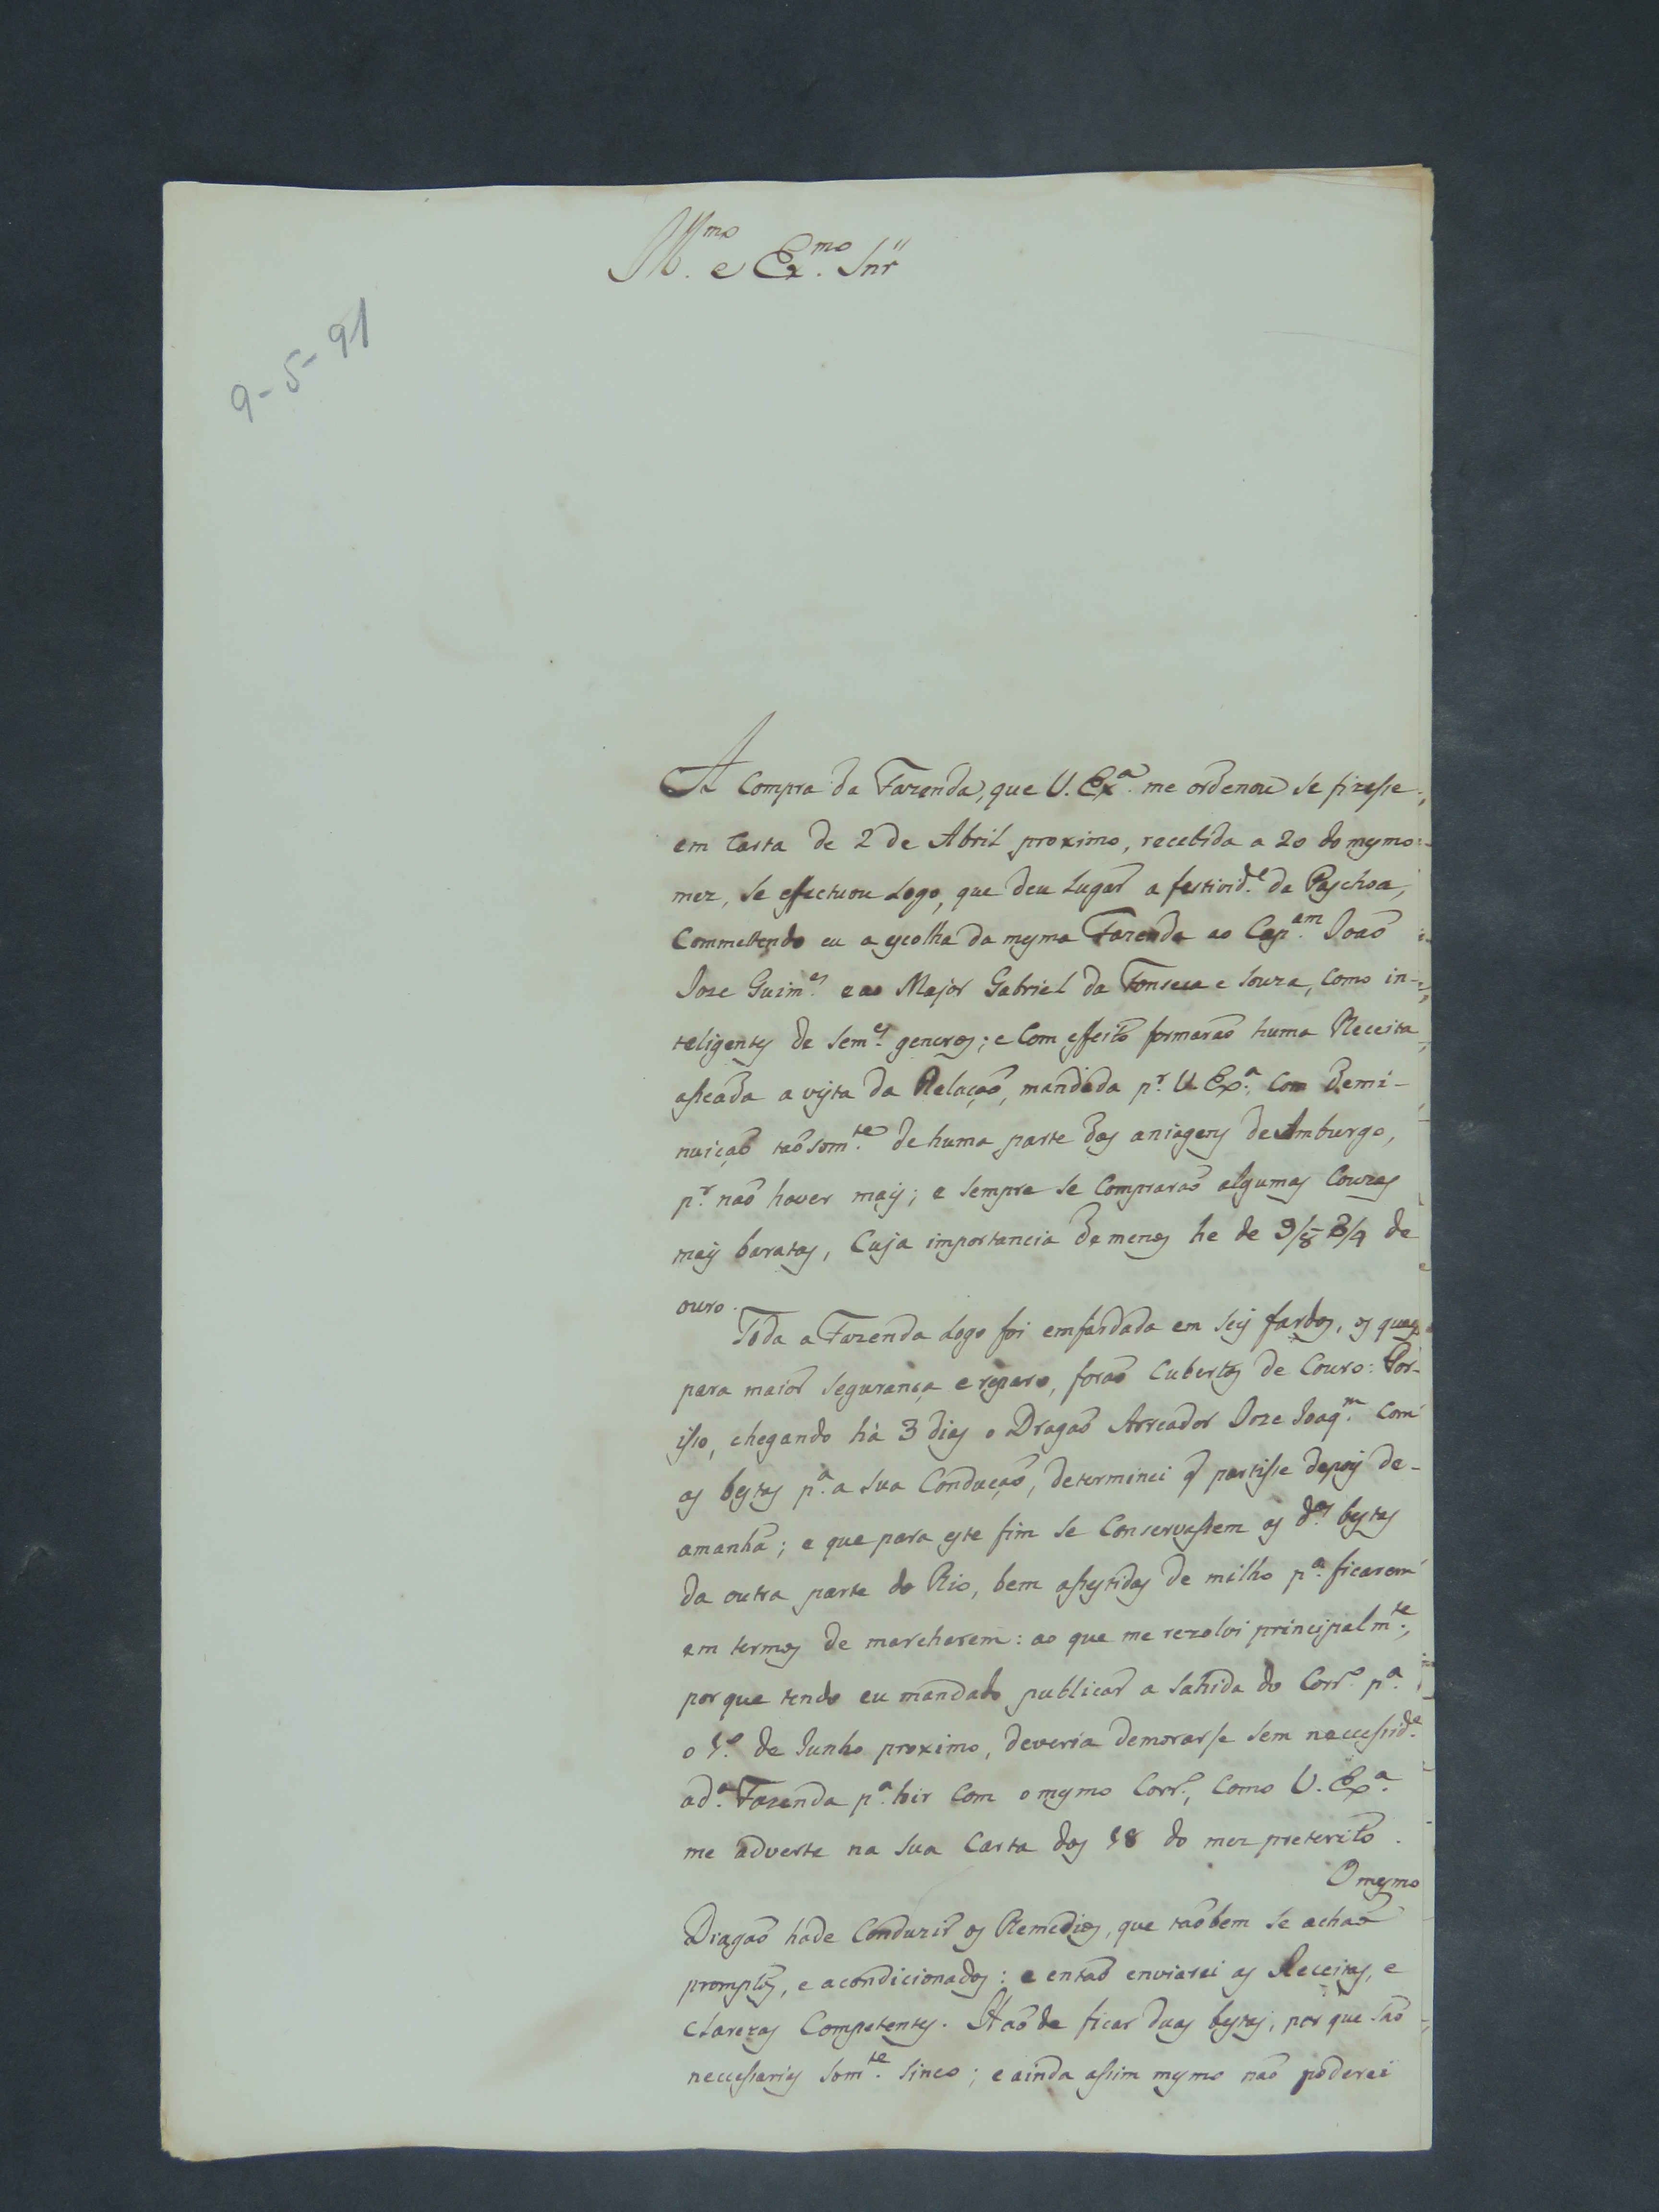 Ill.mo e Ex.mo Snr
9-5-91
A Compra da Fazenda, que V. Ex.a me ordenou se fizesse
em Carta de 2 de Abril proximo, recebida a 20 do mesmo
mez, se effectuou logo, que deu lugar a festivid.e da Paschoa,
Commettendo eu a escolha da mesma Fazenda ao Cap.am Joaõ
Joze Guim.es e ao Major Gabriel da Fonseca e Souza, como in-
teligentes de sem.es generos; e Com effeito formaraõ huma Receita
asseada a vista da Relaçaõ, mandada p.r V. Ex.a, Com demi-
nuiçaõ taõ som.te de huma parte das aniagens de Amburgo,
p.r naõ haver mais; e sempre se Compraraõ algumas Couzas
mais baratas, Cuja importancia de menos he de 9/8 3/4 de
ouro.
Toda a Fazenda logo foi emfardada em seis fardos, os quaes
para maior segurança e reparo, foraõ Cubertos de Couro: Por-
isso, chegando há 3 dias o Dragaõ Arreador Joze Joaq.m Com
as bestas p.a a sua Conduçaõ, determinei q partisse depois de-
amanhã; e que para este fim se Conservassem as d.as bestas
da outra parte do Rio, bem assestidas de milho p.a ficarem
em termos de marcharem: ao que me rezolvi principalm.te,
por que tendo eu mandado publicar a sahida do Corr.o p.a
o 1.o de Junho proximo, deveria demorarse sem necessid.e
a d.a Fazenda p.a hir Com o mesmo Corr.o, Como V. Ex.a
me adverte na sua Carta dos 18 do mez preterito.
O mesmo
Dragaõ hade Conduzir os Remedios, que taõbem se achaõ
promptos, e acondicionados: e entaõ enviarei as Receitas, e
clarezas Competentes. Haõ de ficar duas bestas, por que saõ
necessarias som.te sinco; e ainda assim mesmo naõ poderei